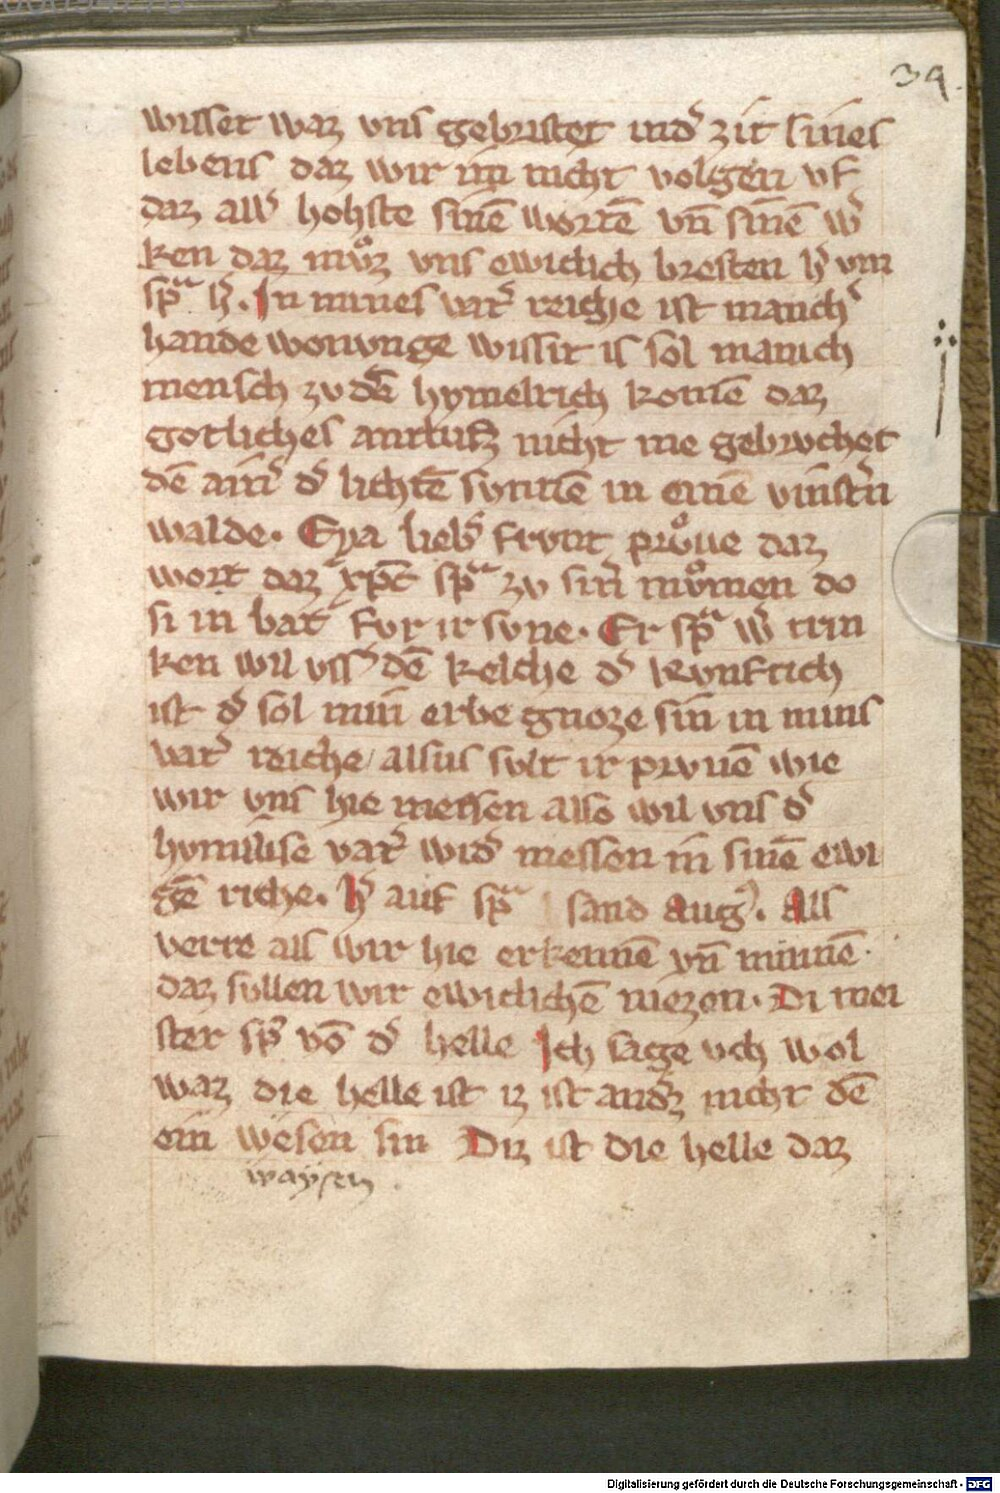 39.
wisset waz vns gebristet ind᷎ zit sines
lebens daz wir im nicht volgen vf
daz all᷎ hohste sinē wortē vn̄ sinē w᷎
ken daz mvͦz vns ewiclich bresten h᷎ vm
spᵃ h᷎. In mines vat᷎ reiche ist manch᷎
hande wonvnge wissit is sol manich
mensch zv dē hymelrich komē daz
gotliches antlutz nicht me gebrvchet
dē ain᷎ d᷎ lichtē svnnē in einē vinst᷎n
walde. Eya lieb᷎ frvnt prvͦue daz
wort daz xp̄c spᵃ zv sin᷎ mvͦmen do
si in bat for ir svne. Er spᵃ w᷎ trin
ken wil vss dē kelche d᷎ kvnftich
ist d᷎ sol min erbe gnoze sin in mins
vat᷎ reiche / alsus svlt ir prvuē wie
wir vns hie messen also wil vns d᷎
hymilise vat᷎ wid᷎ messen in sinē ewi
gē riche. H᷎ auf spᵃ sand Aug᷎. Als
verre als wir hie erkennē vn̄ minnē.
daz svllen wir ewiclichē niezen. Di mei
ster sp᷎ vō d᷎ helle Ich sage vch wol
waz die helle ist iz ist and᷎z nicht dē
ein wesen sin Diz ist die helle daz
waysen
Digitalisierung gefördert durch die Deutsche Forschungsgemeinschaft - DFG